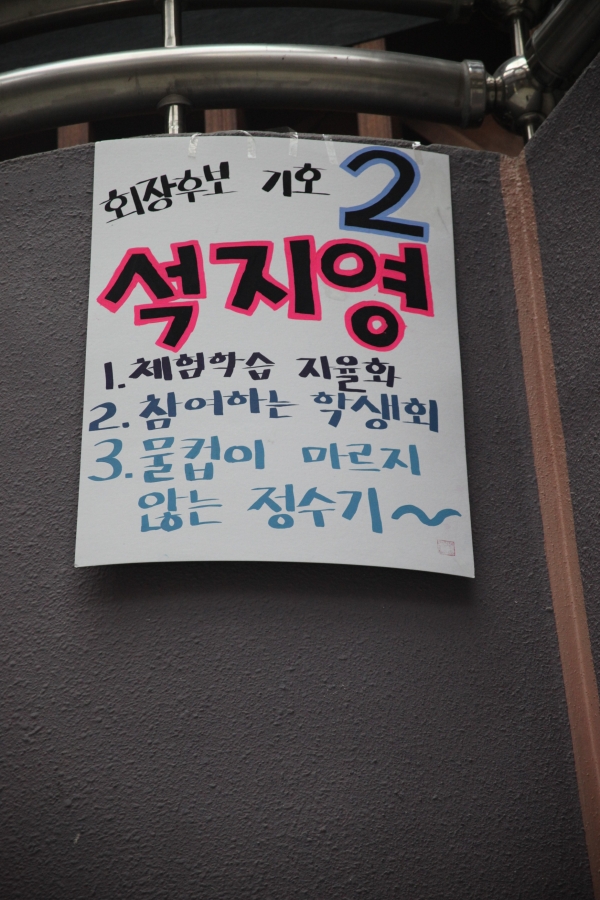 회장후보 기호 2
석지영
1. 체험학습 자율화
2. 참여하는 학생회
3. 물컵이 마르지
않는 정수기~